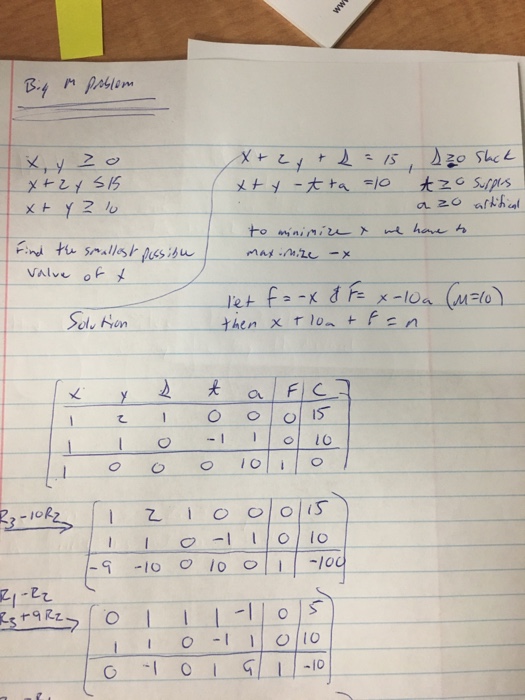 Big M Problem
x, y ≥ 0
x + 2y ≤ 15
x + y ≥ 10
Find the smallest possible
value of x
Solution
x + 2y + s = 15, s ≥ 0 slack
x + y - t + a = 10 t ≥ 0 surplus
a ≥ 0 artificial
to minimize x we have to
maximize -x
let f = -x & F = x - 10a (M=10)
then x + 10a + F = n
x y s t a F C
1 2 1 0 0 0 15
1 1 0 -1 1 0 10
1 0 0 0 10 1 0
R3 - 10R2
1 2 1 0 0 0 15
1 1 0 -1 1 0 10
-9 -10 0 10 0 1 -100
R1 - R2
R3 + 9R2
0 1 1 1 -1 0 5
1 1 0 -1 1 0 10
0 -1 0 1 9 1 -10